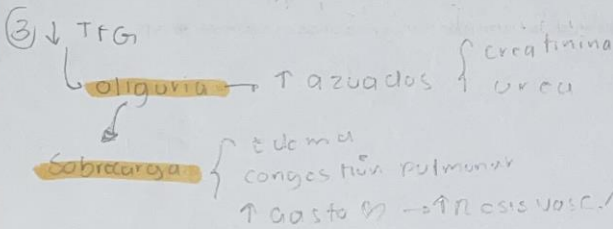 ③ ↓ TFG
oliguria → ↑ azoados { creatinina
urea
Sobrecarga { edema
congestión pulmonar
↑ Gasto → ↑ vasc.